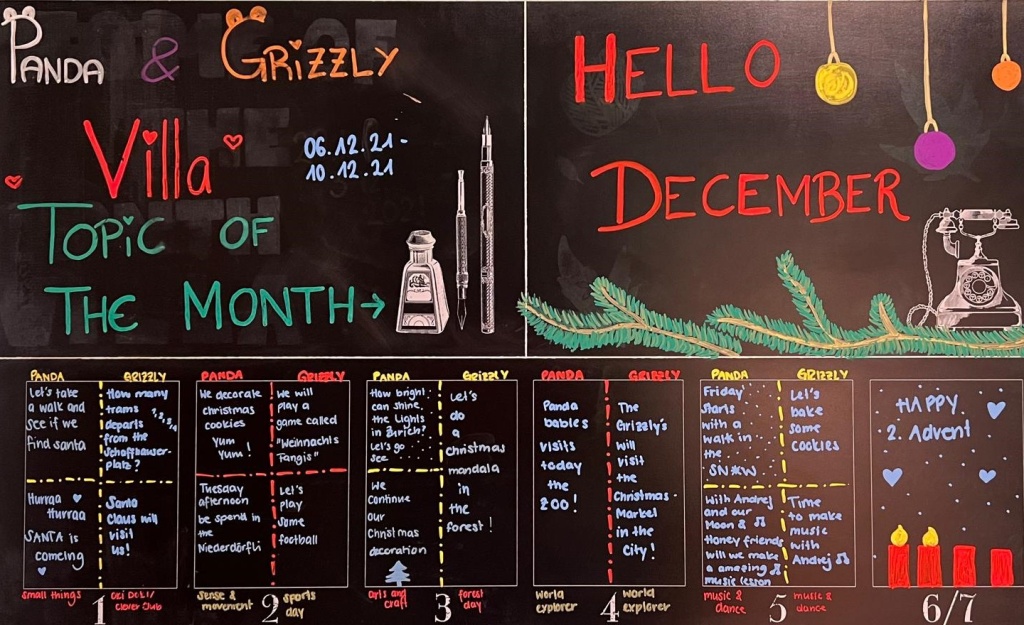 PANDA & GRIZZLY
Villa
06.12.21-
10.12.21
TOPIC OF
THE MONTH→
HELLO
DECEMBER
PANDA
Let's take
a walk and
see if we
find santa
Hurraa
Hurraa
SANTA is
comeing
small things
GRIZZLY
How many
trams 1,2,3,4
departs
from the
Schaffhauser-
platz?
Santa
claus will
visit
us!
Clever Club
1
PANDA
We decorate
christmas
cookies
Yum
Yum!
Tuesday
afternoon
be spend in
the
Niederdörfli
sense &
movement
GRIZZLY
We will
play a
game called
"Weihnachts
Tangis"
Let's
play
some
football
sports
day
2
PANDA
How bright
can shine
the Lights
in Zürich?
Let's go
see
We
continue
our
Christmas
decoration
arts and
craft
GRIZZLY
Let's
do
a
christmas
mandala
in
the
forest!
forest
day
3
PANDA
Panda
babies
visits
today
the
ZOO!
world
explorer
GRIZZLY
The
Grizzly's
will
visit
the
Christmas-
Market
in the
City!
world
explorer
4
PANDA
Friday
starts
with a
walk in
the
SN*W
With Andrej
and our
Moon &
Honey friends
will we make
a amazing
music lesson
music &
dance
GRIZZLY
Let's
bake
some
cookies
Time
to make
music
with
Andrej
music &
dance
5
HAPPY
2. Advent
6/7